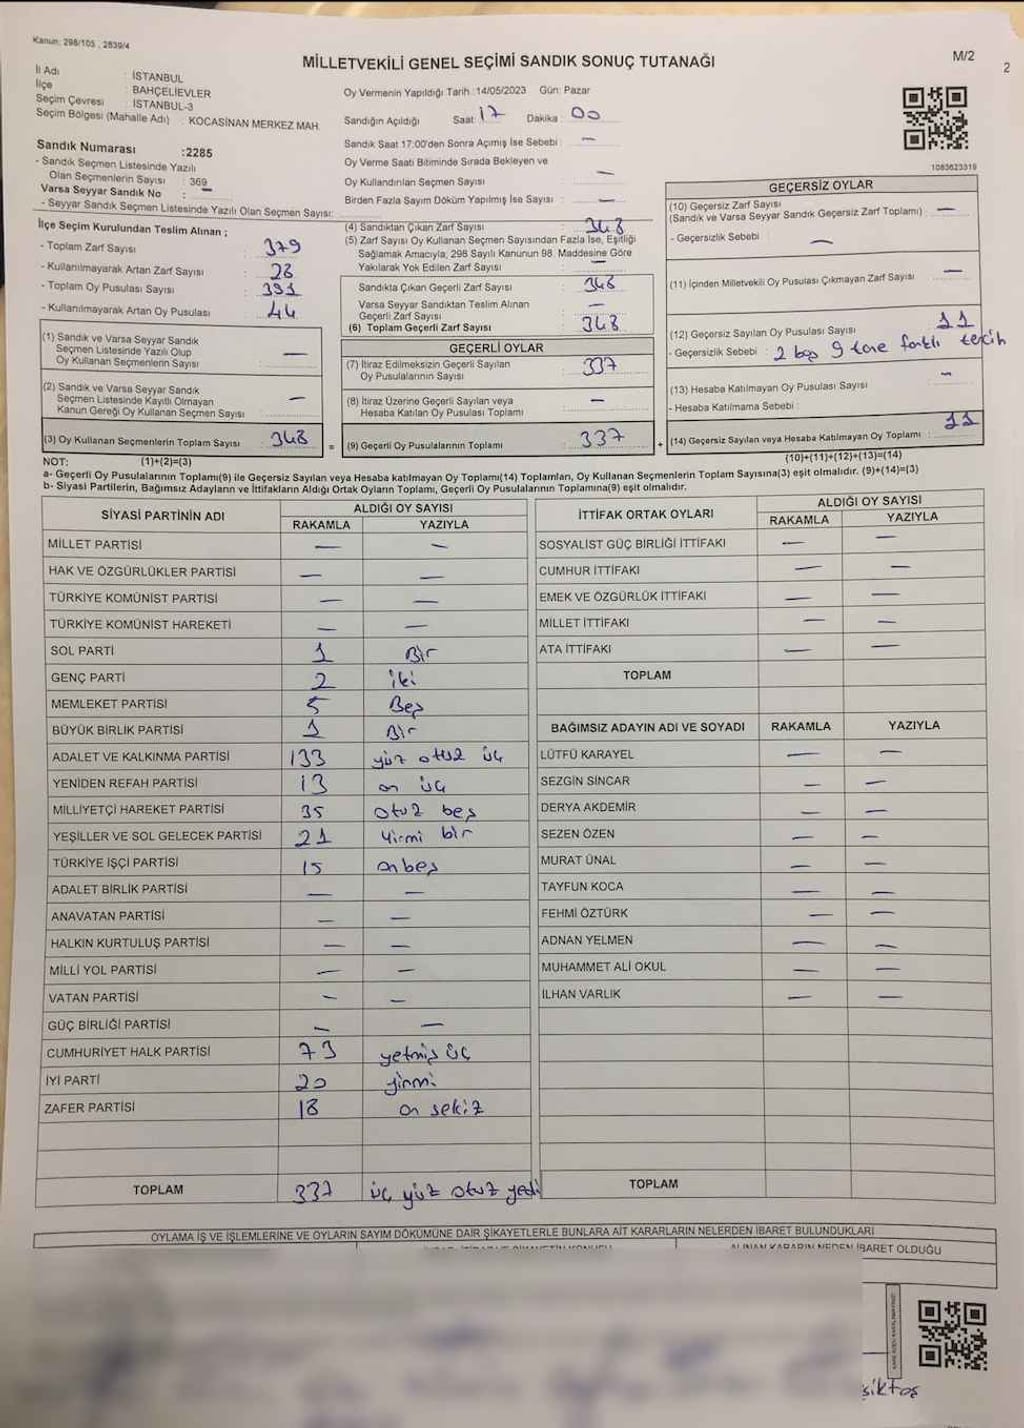 Kanun: 298/105 , 2839/4
MİLLETVEKİLİ GENEL SEÇİMİ SANDIK SONUÇ TUTANAĞI
M/2
2
İl Adı : İSTANBUL
İlçe : BAHÇELİEVLER
Seçim Çevresi : İSTANBUL-3
Seçim Bölgesi (Mahalle Adı) : KOCASİNAN MERKEZ MAH.
Sandık Numarası :2285
- Sandık Seçmen Listesinde Yazılı
Olan Seçmenlerin Sayısı : 369
Varsa Seyyar Sandık No : —
- Seyyar Sandık Seçmen Listesinde Yazılı Olan Seçmen Sayısı:
Oy Vermenin Yapıldığı Tarih : 14/05/2023 Gün: Pazar
Sandığın Açıldığı Saat: 17 Dakika : 00
Sandık Saat 17:00'den Sonra Açılmış İse Sebebi : —
Oy Verme Saati Bitiminde Sırada Bekleyen ve
Oy Kullandırılan Seçmen Sayısı : —
Birden Fazla Sayım Döküm Yapılmış İse Sayısı : —
1083623319
İlçe Seçim Kurulundan Teslim Alınan ;
- Toplam Zarf Sayısı : 379
- Kullanılmayarak Artan Zarf Sayısı : 28
- Toplam Oy Pusulası Sayısı : 391
- Kullanılmayarak Artan Oy Pusulası : 44
(1) Sandık ve Varsa Seyyar Sandık
Seçmen Listesinde Yazılı Olup
Oy Kullanan Seçmenlerin Sayısı : —
(2) Sandık ve Varsa Seyyar Sandık
Seçmen Listesinde Kayıtlı Olmayan
Kanun Gereği Oy Kullanan Seçmen Sayısı : —
(3) Oy Kullanan Seçmenlerin Toplam Sayısı : 348
(4) Sandıktan Çıkan Zarf Sayısı : 348
(5) Zarf Sayısı Oy Kullanan Seçmen Sayısından Fazla İse, Eşitliği
Sağlamak Amacıyla, 298 Sayılı Kanunun 98. Maddesine Göre
Yakılarak Yok Edilen Zarf Sayısı : —
Sandıkta Çıkan Geçerli Zarf Sayısı : 348
Varsa Seyyar Sandıktan Teslim Alınan
Geçerli Zarf Sayısı : —
(6) Toplam Geçerli Zarf Sayısı : 348
GEÇERLİ OYLAR
(7) İtiraz Edilmeksizin Geçerli Sayılan
Oy Pusulalarının Sayısı : 337
(8) İtiraz Üzerine Geçerli Sayılan veya
Hesaba Katılan Oy Pusulası Toplamı : —
= (9) Geçerli Oy Pusulalarının Toplamı : 337 +
GEÇERSİZ OYLAR
(10) Geçersiz Zarf Sayısı
(Sandık ve Varsa Seyyar Sandık Geçersiz Zarf Toplamı) : —
- Geçersizlik Sebebi : —
(11) İçinden Milletvekili Oy Pusulası Çıkmayan Zarf Sayısı : —
(12) Geçersiz Sayılan Oy Pusulası Sayısı : 11
- Geçersizlik Sebebi : 2 boş 9 tane farklı tercih
(13) Hesaba Katılmayan Oy Pusulası Sayısı : —
- Hesaba Katılmama Sebebi :
(14) Geçersiz Sayılan veya Hesaba Katılmayan Oy Toplamı : 11
NOT: (1)+(2)=(3)
(10)+(11)+(12)+(13)=(14)
a- Geçerli Oy Pusulalarının Toplamı(9) ile Geçersiz Sayılan veya Hesaba katılmayan Oy Toplamı(14) Toplamları, Oy Kullanan Seçmenlerin Toplam Sayısına(3) eşit olmalıdır. (9)+(14)=(3)
b- Siyasi Partilerin, Bağımsız Adayların ve İttifakların Aldığı Ortak Oyların Toplamı, Geçerli Oy Pusulalarının Toplamına(9) eşit olmalıdır.
SİYASİ PARTİNİN ADI ALDIĞI OY SAYISI
RAKAMLA YAZIYLA
MİLLET PARTİSİ — —
HAK VE ÖZGÜRLÜKLER PARTİSİ — —
TÜRKİYE KOMÜNİST PARTİSİ — —
TÜRKİYE KOMÜNİST HAREKETİ — —
SOL PARTİ 1 Bir
GENÇ PARTİ 2 iki
MEMLEKET PARTİSİ 5 Beş
BÜYÜK BİRLİK PARTİSİ 1 Bir
ADALET VE KALKINMA PARTİSİ 133 yüz otuz üç
YENİDEN REFAH PARTİSİ 13 on üç
MİLLİYETÇİ HAREKET PARTİSİ 35 otuz beş
YEŞİLLER VE SOL GELECEK PARTİSİ 21 yirmi bir
TÜRKİYE İŞÇİ PARTİSİ 15 onbeş
ADALET BİRLİK PARTİSİ — —
ANAVATAN PARTİSİ — —
HALKIN KURTULUŞ PARTİSİ — —
MİLLİ YOL PARTİSİ — —
VATAN PARTİSİ — —
GÜÇ BİRLİĞİ PARTİSİ — —
CUMHURİYET HALK PARTİSİ 73 yetmiş üç
İYİ PARTİ 20 yirmi
ZAFER PARTİSİ 18 on sekiz
TOPLAM 337 üç yüz otuz yedi
İTTİFAK ORTAK OYLARI ALDIĞI OY SAYISI
RAKAMLA YAZIYLA
SOSYALİST GÜÇ BİRLİĞİ İTTİFAKI — —
CUMHUR İTTİFAKI — —
EMEK VE ÖZGÜRLÜK İTTİFAKI — —
MİLLET İTTİFAKI — —
ATA İTTİFAKI — —
TOPLAM
BAĞIMSIZ ADAYIN ADI VE SOYADI RAKAMLA YAZIYLA
LÜTFÜ KARAYEL — —
SEZGİN SİNCAR — —
DERYA AKDEMİR — —
SEZEN ÖZEN — —
MURAT ÜNAL — —
TAYFUN KOCA — —
FEHMİ ÖZTÜRK — —
ADNAN YELMEN — —
MUHAMMET ALİ OKUL — —
İLHAN VARLIK — —
TOPLAM
OYLAMA İŞ VE İŞLEMLERİNE VE OYLARIN SAYIM DÖKÜMÜNE DAİR ŞİKAYETLERLE BUNLARA AİT KARARLARIN NELERDEN İBARET BULUNDUKLARI
ALINAN KARARIN NEDEN İBARET OLDUĞU
şiktaş